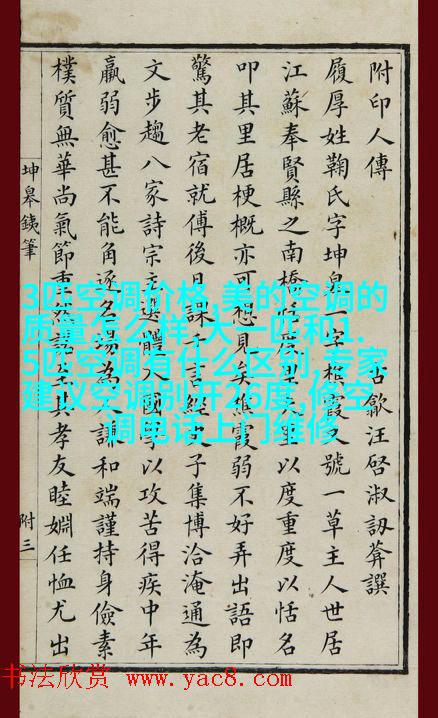 附印人傳
古歙汪啓淑訒葊譔
履厚姓鞠氏字坤皋一字樵霞又號一草主人世居
江蘇奉賢縣之南橋恬度里夫里以度重度以恬名
叩其里居梗概亦可想見矣樵霞弱不好弄出語即
驚其老宿就傅後日課千言經史子集博洽淹通為
文步趨八家詩宗主選體入國學以攻苦得疾中年
羸弱愈甚不能角逐名場為人謙和端謹持身儉素
樸質無華尚氣節重然諾至其孝友睦婣任恤尤出
坤皋鐵筆
附三
3匹空调价格,美的空调的
质量怎么样,大一匹和1.
5匹空调有什么区别,专家
建议空调别开26度,修空
调电话上门维修
书法欣赏 www.yac8.com